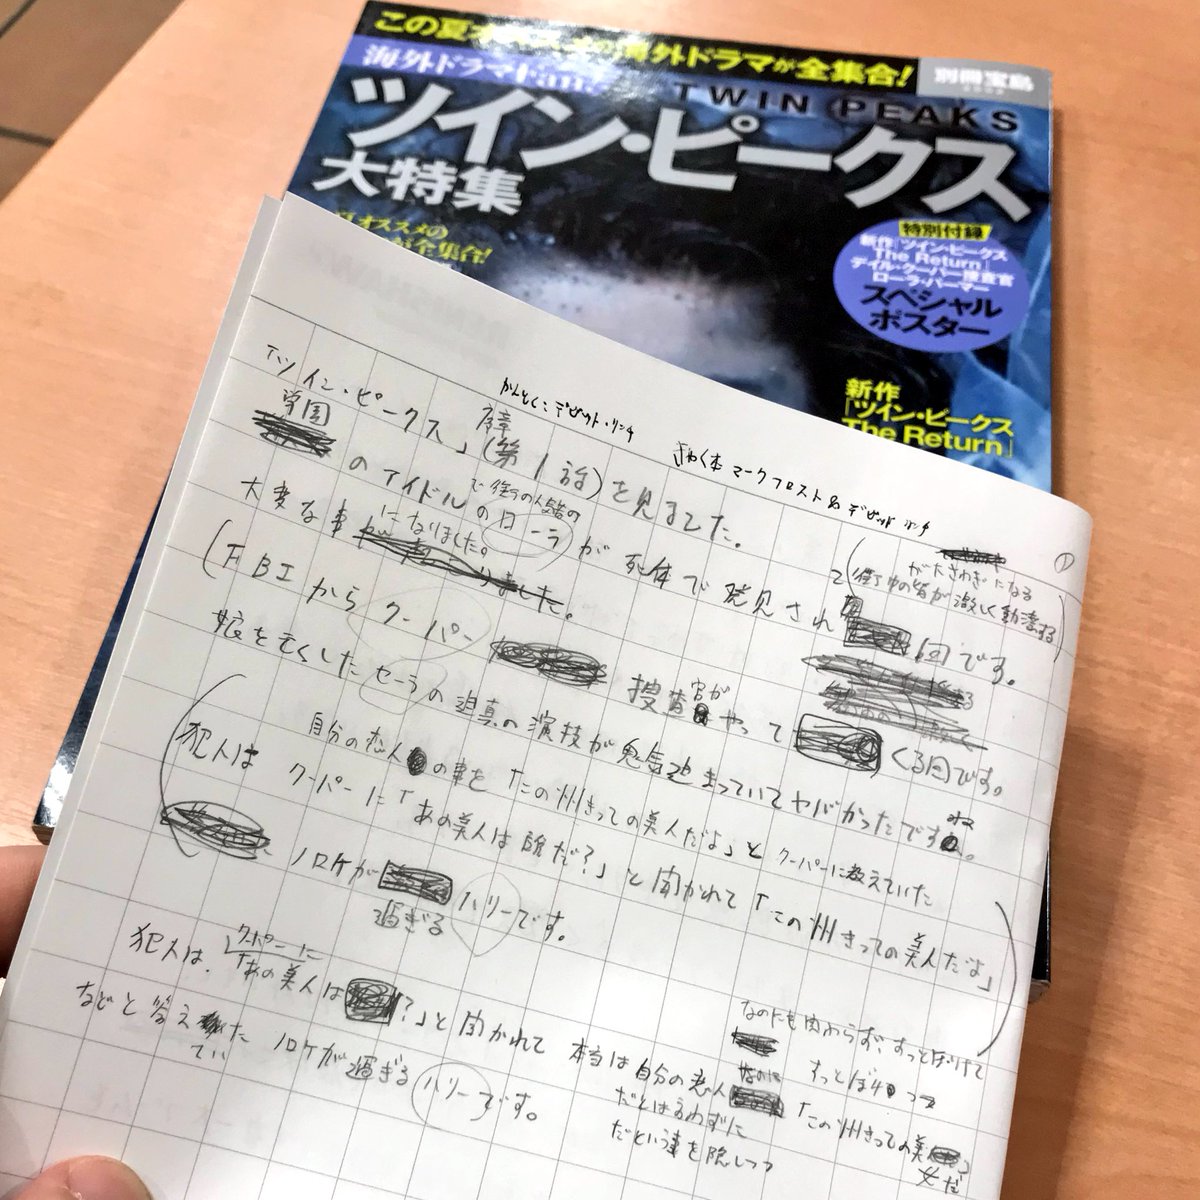 この夏オ
海外ドラマが全集合!
別冊宝島
海外ドラマFan
TWIN PEAKS
ツイン・ピークス
大特集
オススメの
が全集合!
特別付録
新作「ツイン・ピークス
The Return」
デイル・クーパー捜査官
ローラ・パーマー
スペシャル
ポスター
新作
「ツイン・ピークス
The Return」
かんとく:デビット・リンチ
きゃく本 マークフロスト&デビッド リンチ
①
「ツイン・ピークス」序章(第1話)を見ました。
学園
のアイドルの
で街の人気者の
ローラが死体で発見され
がたさわぎになる
(街中の皆が激しく動揺する)
回です。
大変な事
になりました。
(FBIからクーパー
捜査官がやって
くる回です。
娘を亡くしたセーラの迫真の演技が鬼気迫まっていてヤバかったですね。
自分の恋人の事を「この州きっての美人だよ」とクーパーに教えていた
犯人は クーパーに「あの美人は誰だ?」と聞かれて「この州きっての美人だよ」
ノロケが
過ぎる
ハリーです。
犯人は、
クーパーに
「あの美人は
?」と聞かれて 本当は自分の恋人
なのにも関わらず、すっとぼけて
なのに
すっとぼけつつ
「この州きっての美
女だ
だとは言わずに
だという事を隠しつつ
などと答え
てい
た ノロケが過ぎるハリーです。